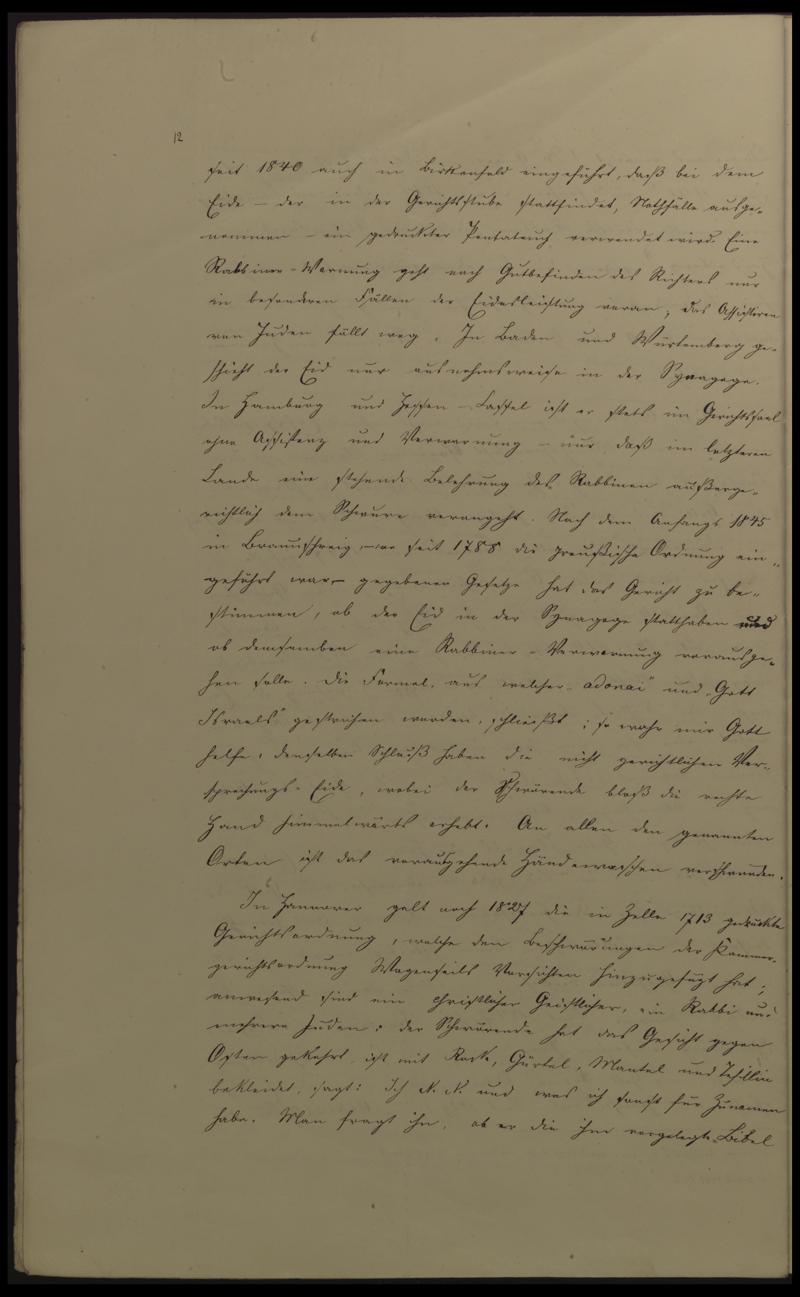 12
seit 1840 auch in Birkenfeld eingeführt, daß bei dem
Eide – der in der Gerichtsstube stattfindet, Nothfälle ausge-
nommen – ein gedruckter Pentateuch verwendet wird. Eine
Rabbiner-Warnung geht nach Gutbefinden des Richters nur
in besonderen Fällen der Eidesleistung voran; das Assistiren
von Juden fällt weg. In Baden und Würtemberg ge-
schieht der Eid nur ausnahmsweise in der Synagoge.
In Hamburg und Hessen-Cassel ist er stets im Gerichtssaal
ohne Assistenz und Verwarnung – nur daß im letzteren
Lande eine stehende Belehrung des Rabbinen außerge-
richtlich dem Schwure vorangeht. Nach dem Anfangs 1845
in Braunschweig, – wo seit 1788 die preußische Ordnung ein-
geführt war, – gegebenen Gesetze hat das Gericht zu be-
stimmen, ob der Eid in der Synagoge statthaben und
ob demselben eine Rabbiner-Verwarnung vorausge-
hen solle. Die Formel, aus welcher „adonai" und „Gott
Israels" gestrichen worden, schließt: so wahr mir Gott
helfe; denselben Schluß haben die nicht gerichtlichen Ver-
sprechungs-Eide, wobei der Schwörende bloß die rechte
Hand himmelwärts erhebt. An allen den genannten
Orten ist das vorausgehende Händewaschen verschwunden.
In Hannover galt noch 1827 die in Zelle 1713 gedruckte
Gerichtsordnung, welche den Beschwörungen der Kammer-
gerichtsordnung Wagenseils Vorsichten hinzugefügt hat;
anwesend sind ein christlicher Geistlicher, ein Rabbi und
mehrere Juden; der Schwörende hat das Gesicht gegen
Osten gekehrt, ist mit Rock, Gürtel, Mantel und Tefillin
bekleidet, sagt: Ich N. N. und was ich sonst für Zunamen
habe. Man fragt ihn, ob er die ihm vorgelegte Bibel